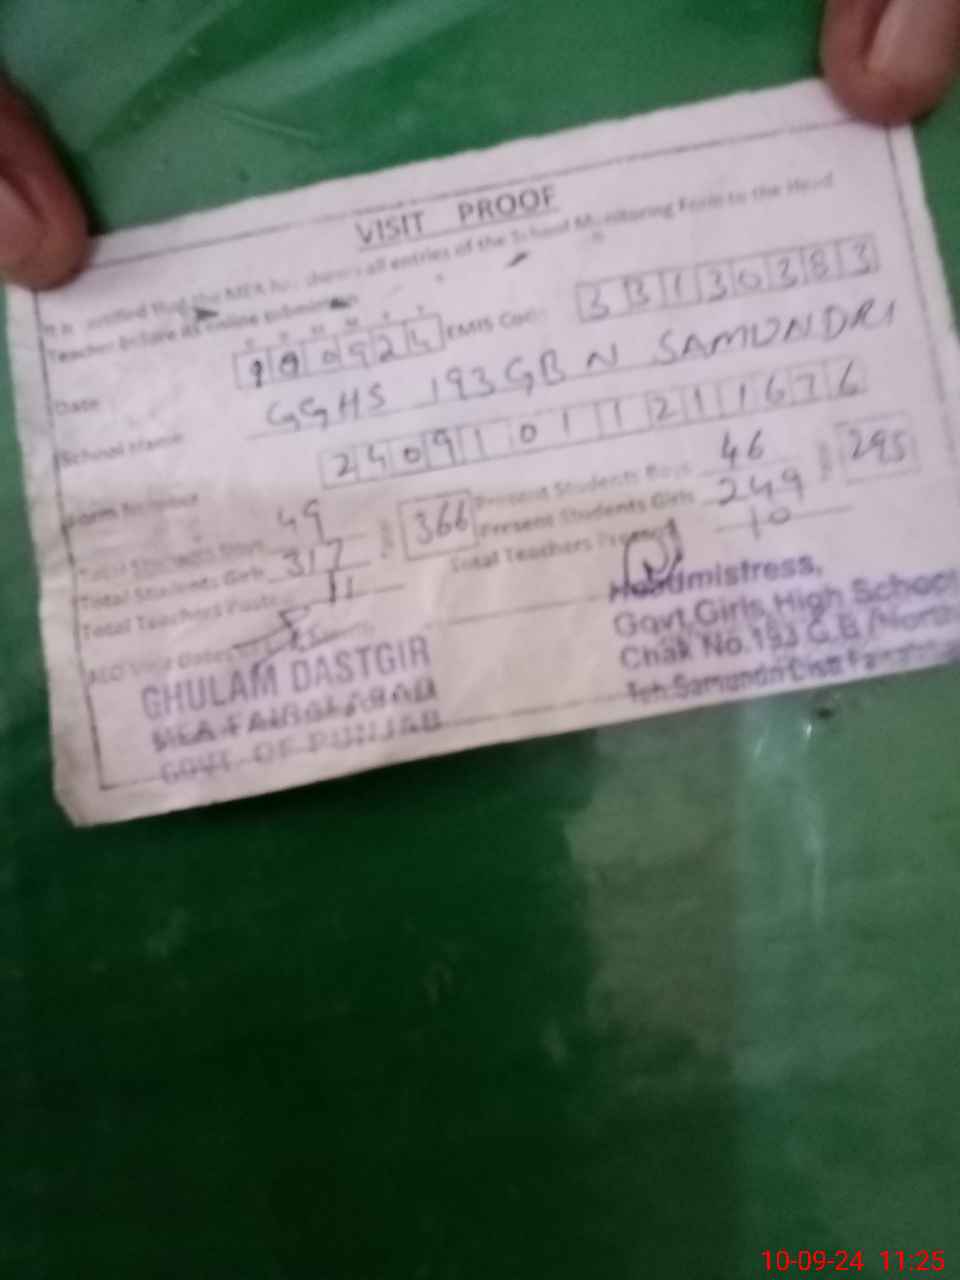 VISIT PROOF
It is certified that the MEA has shown all entries of the School Monitoring Form to the Head
Teacher before its online submission
Date 100924 EMIS Code: 33130383
School Name GGHS 193 GB N SAMUNDRI
Form Number 24091011211676
Total Students Boys 49 366 Present Students Boys 46 295
Total Students Girls 317 Present Students Girls 249
Total Teachers Posted 11 Total Teachers Present 10
AEO Visit Dates
GHULAM DASTGIR
MEA FAISALABAD
GOVT. OF PUNJAB
Headmistress,
Govt Girls High School
Chak No.193 G.B (North
Teh: Samundri Distt
10-09-24 11:25